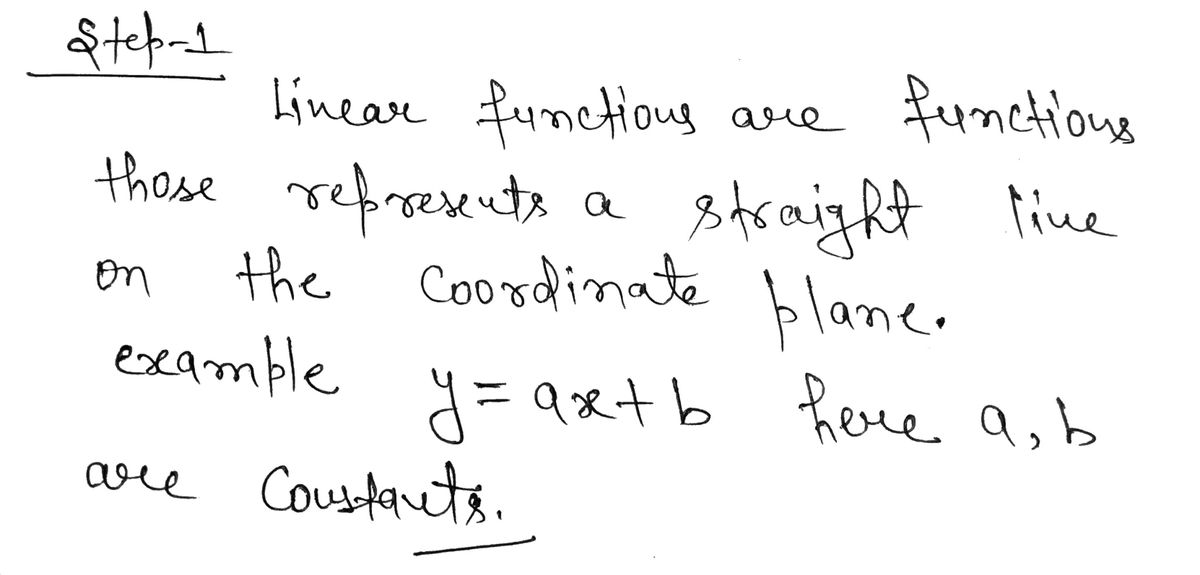 Step-1
Linear functions are functions
those represents a straight line
on the coordinate plane.
example y = ax + b here a, b
are Constants.